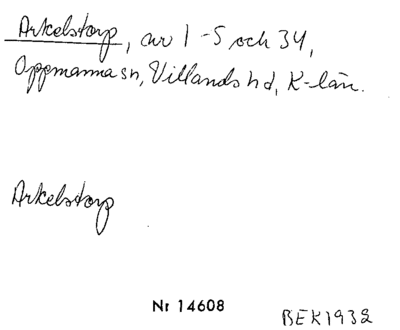 Arkelstorp, nr 1-5 och 34,
Oppmanna sn, Villands hd, K-län.
Arkelstorp
Nr 14608
BEK1932